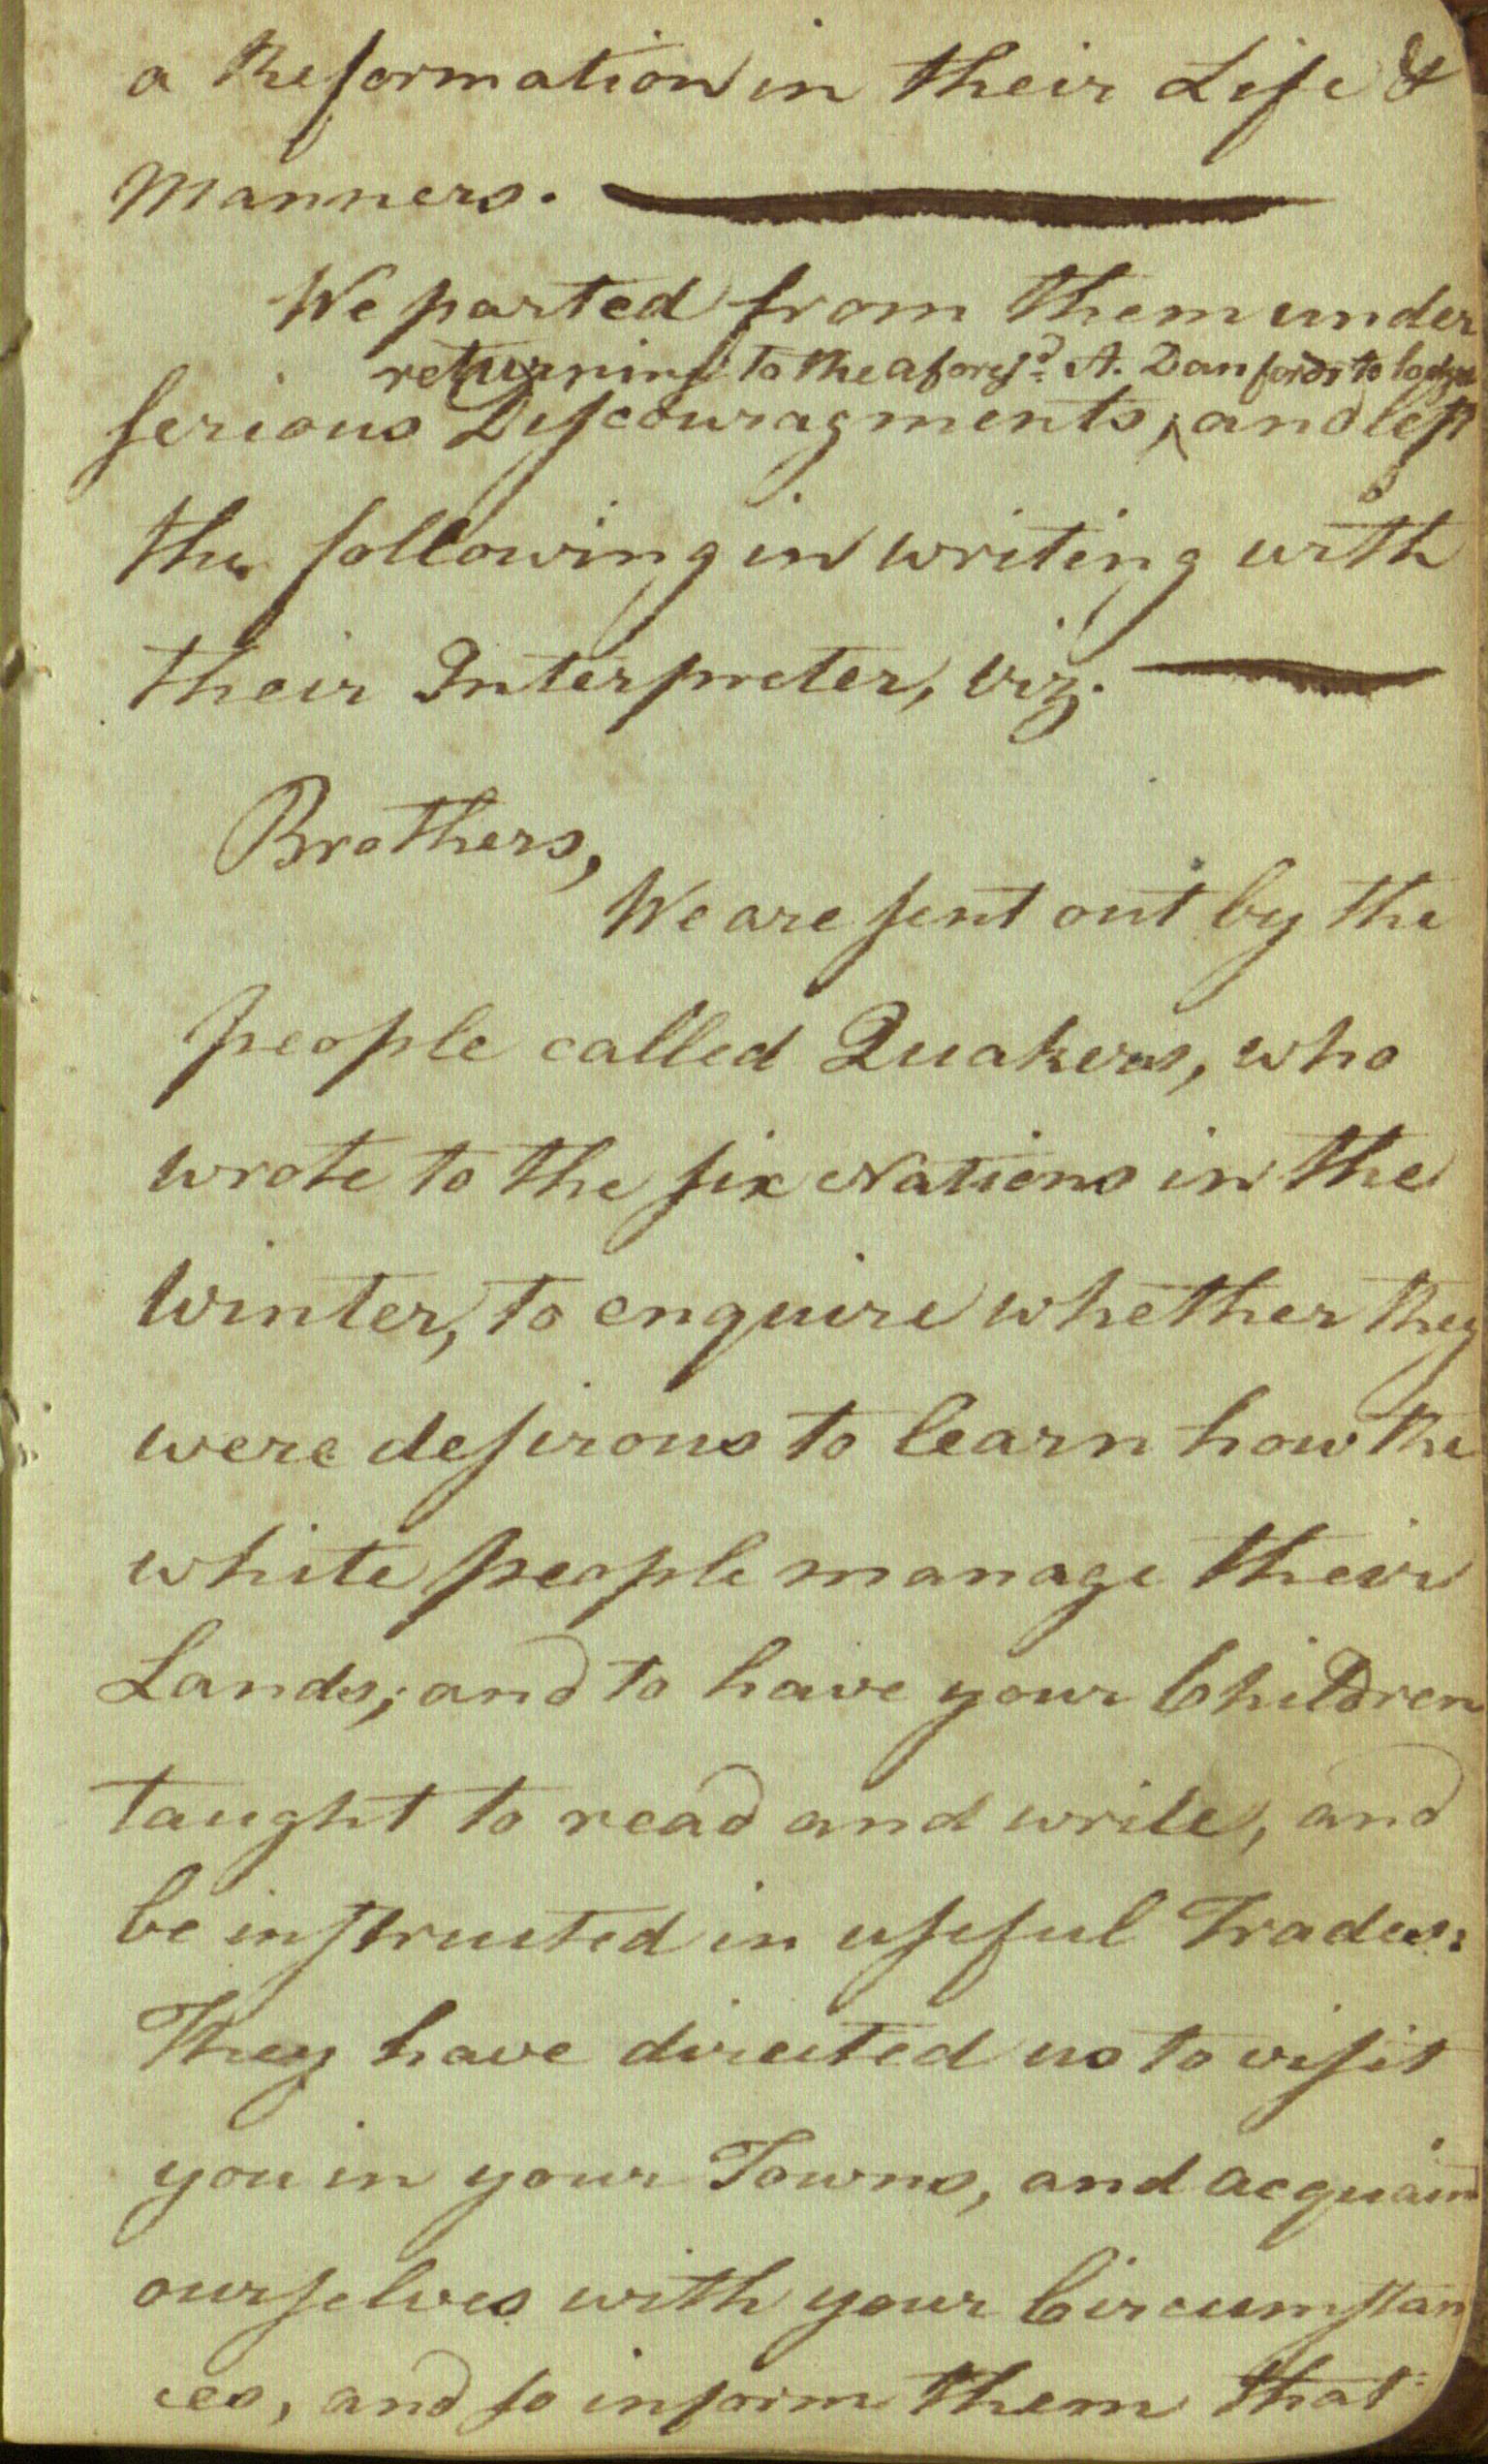 a Reformation in their Life &
Manners.
We parted from them under
returning to the aforesd. A. Danfords to lodge
serious Discouragments, and left
the following in writing with
their Interpreter, viz.
Brothers,
We are sent out by the
people called Quakers, who
wrote to the six Nations in the
Winter, to enquire whether they
were desirous to learn how the
white people manage their
Lands; and to have your Children
taught to read and write, and
be instructed in useful Trades:
They have directed us to visit
you in your Towns, and acquaint
ourselves with your Circumstan
ces, and so inform them that